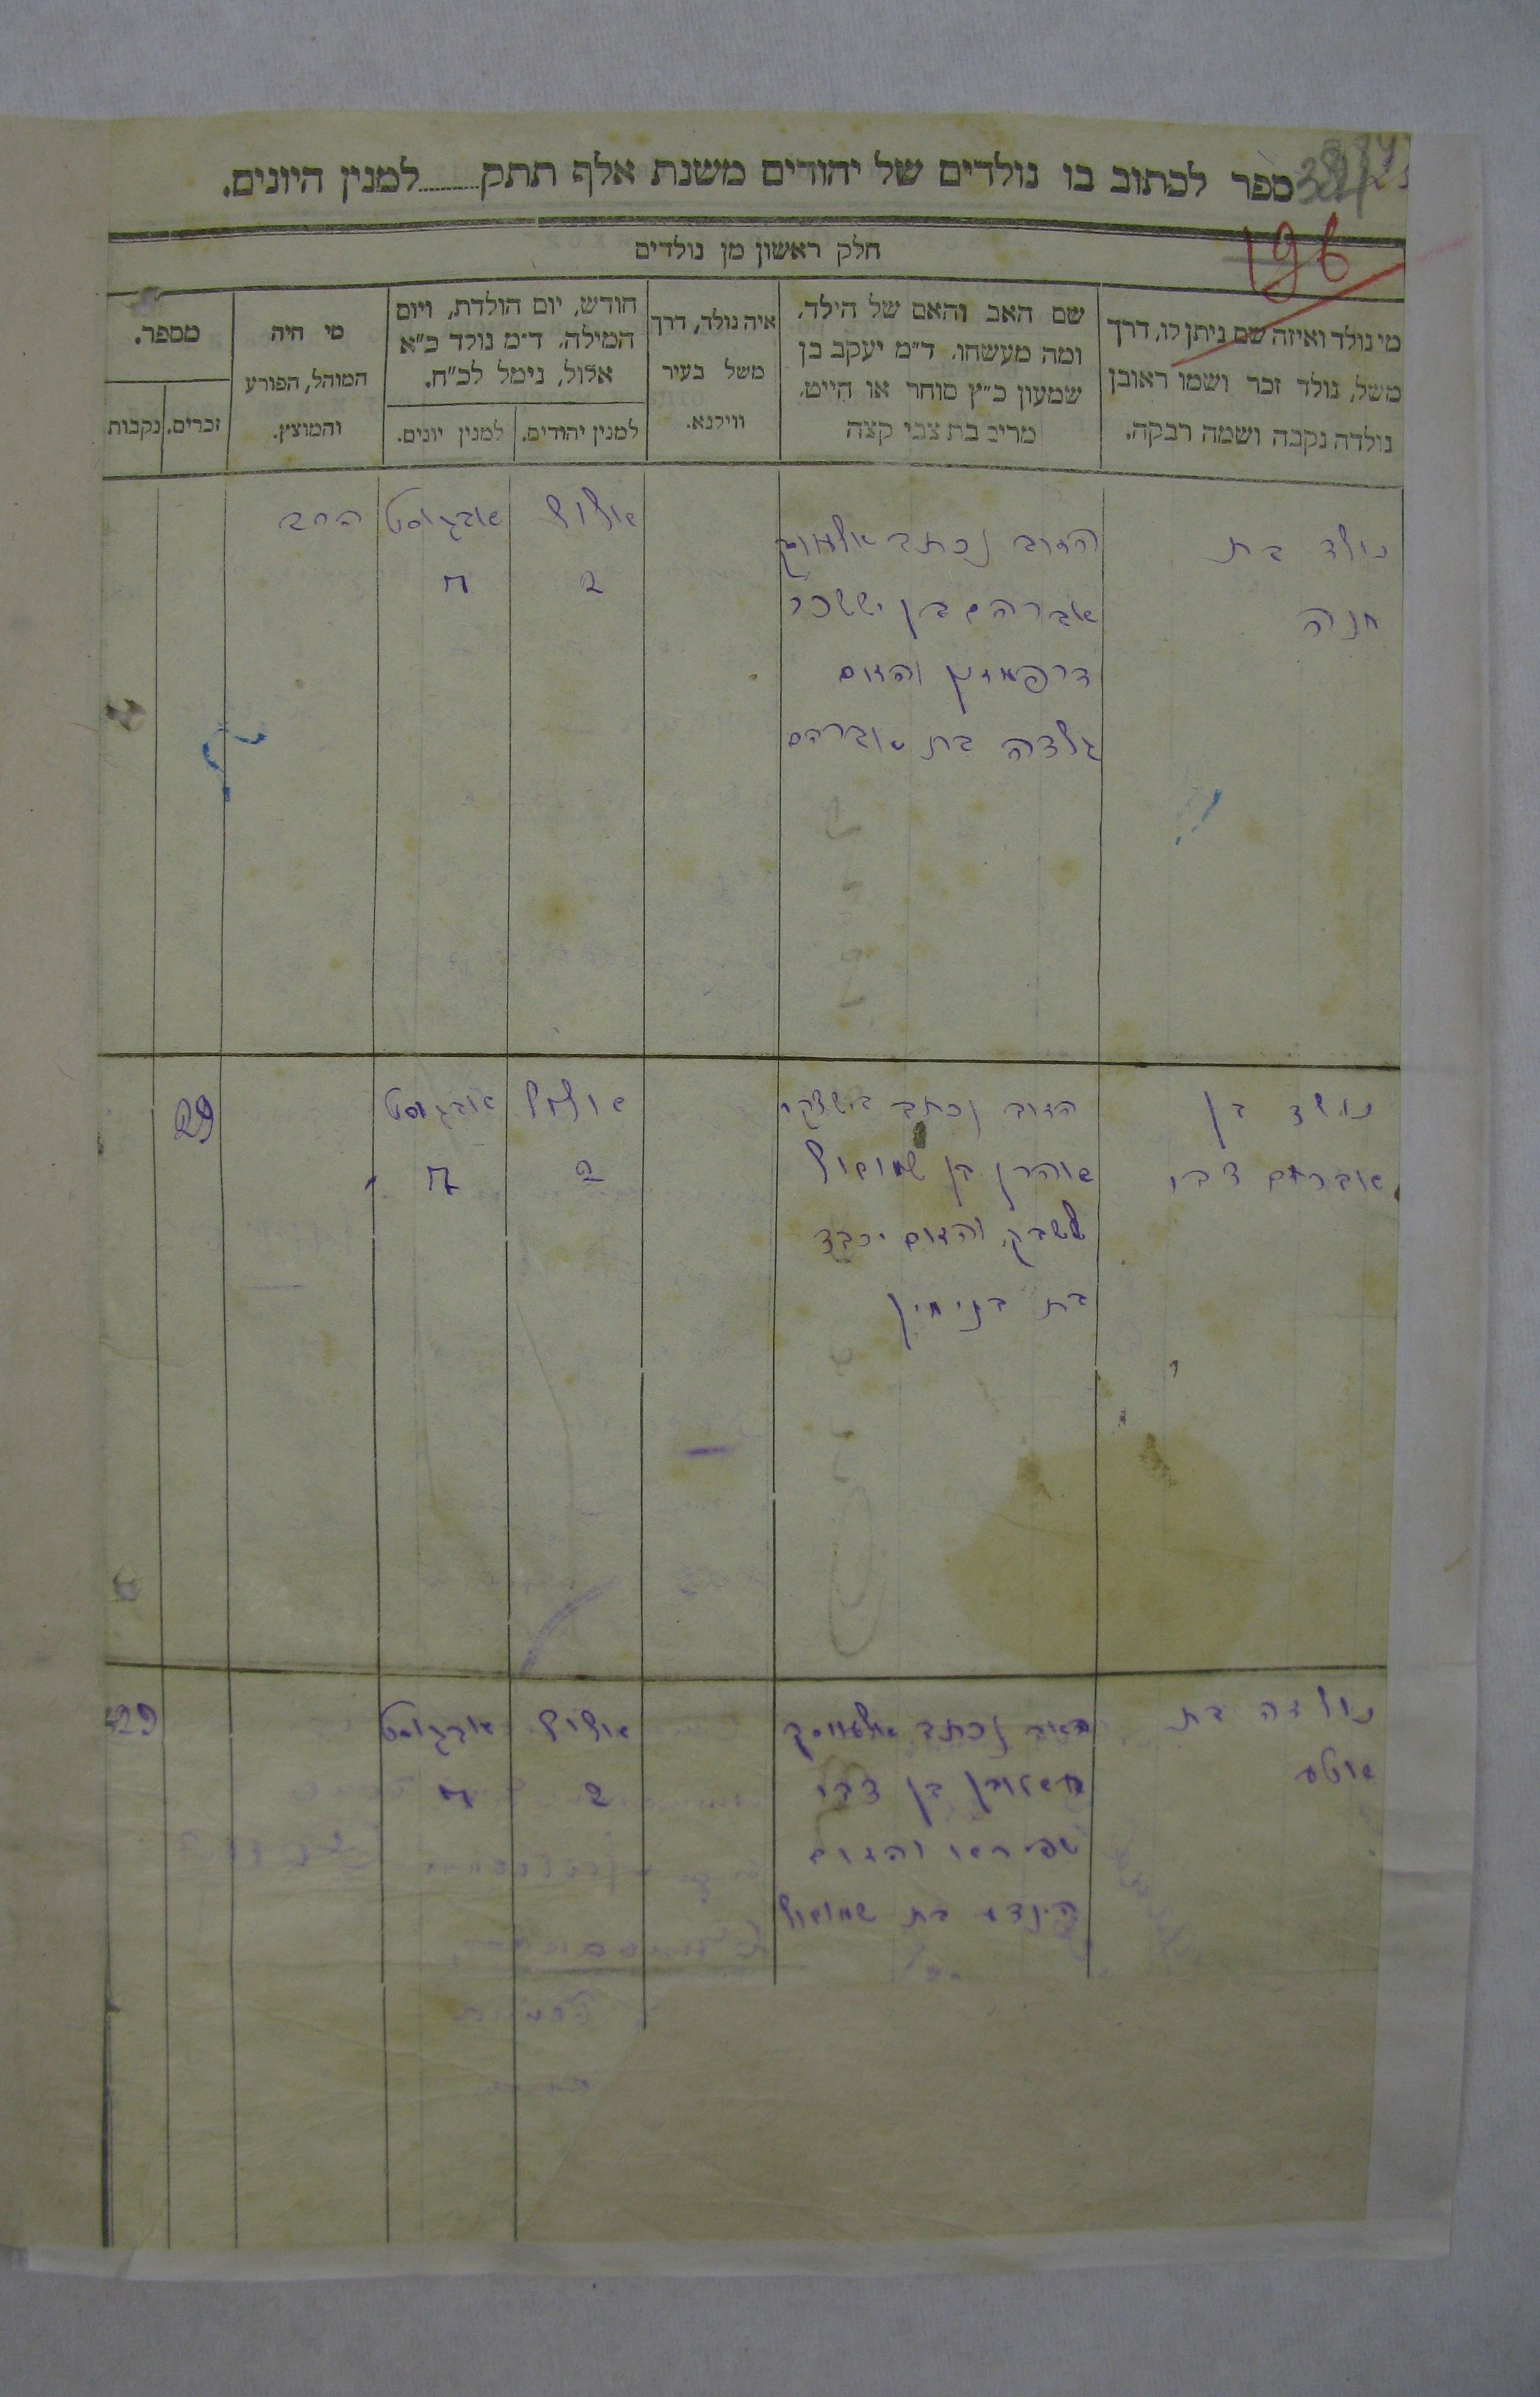 ספר לכתוב בו נולדים של יהודים משנת אלף תתק למנין היונים.
196
חלק ראשון מן נולדים
מי נולד ואיזה שם ניתן לו, דרך
משל, נולד זכר ושמו ראובן
נולדה נקבה ושמה רבקה.
שם האב והאם של הילד,
ומה מעשהו, ד״מ יעקב בן
שמעון כ״ץ סוחר או חייט,
מרים בת צבי קצה
איה נולד, דרך
משל בעיר
ווילנא.
חודש, יום הולדת, ויום
המילה, ד״מ נולד כ״א
אלול, נימל לכ״ח.
למנין יהודים.
למנין יונים.
מי היה
המוהל, הפורע
והמוצץ.
מספר.
זכרים.
נקבות
נולד בת
חנה
האב נכתב
אברהם בן יששכר
והאם
גולדה בת אברהם
אלול
2
אבגוסט
הרב
נולד בן
אברהם צבי
האב נכתב
אהרן בן שמואל
והאם יכבד
בת בנימין
אלול
2
אבגוסט
29
נולדה בת
האב נכתב
בן צבי
שפירא והאם
הינדע בת שמואל
אלול
2
אבגוסט
29